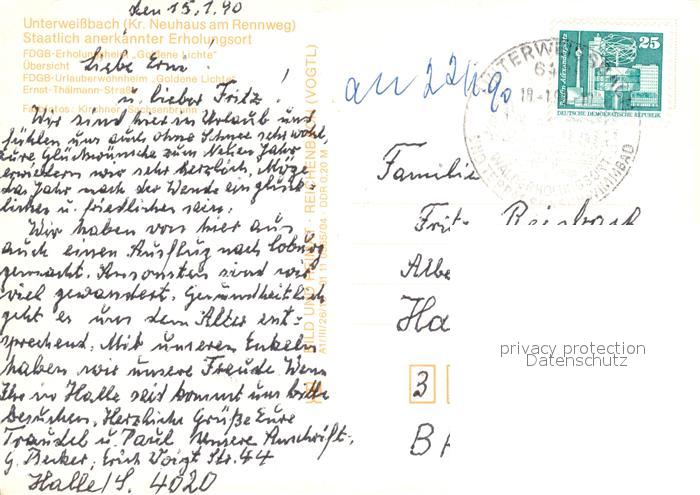 den 15.1.90
Unterweißbach (Kr. Neuhaus am Rennweg)
Staatlich anerkannter Erholungsort
FDGB-Erholungsheim „Goldene Lichte"
Übersicht
FDGB-Urlauberwohnheim „Goldene Lichte"
Ernst-Thälmann-Straße
Liebe Erni!
u. lieber Fritz!
Wir sind hier in Urlaub und
fühlen uns auch ohne Schnee sehr wohl,
eure Glückwünsche zum Neuen Jahr
erwidern wir sehr herzlich. Möge
das Jahr nach der Wende ein glück-
liches u. friedliches sein.
Wir haben von hier aus
auch einen Ausflug nach Coburg
gemacht. Ansonsten sind wir
viel gewandert. Gesundheitlich
geht es uns dem Alter ent-
sprechend. Mit unseren Enkeln
haben wir unsere Freude. Wenn
Ihr in Halle seid kommt uns bitte
besuchen. Herzliche Grüße Eure
Traudel u. Paul Unsere Anschrift:
G. Becker, Erich Voigt Str. 44
Halle/S. 4020
BILD UND HEIMAT REICHENBACH (VOGTL)
an 22/1.90
25
DEUTSCHE DEMOKRATISCHE REPUBLIK
UNTERWEISSB
Familie
Fritz Reisbach
Albe
Ha
3
privacy protection
Datenschutz